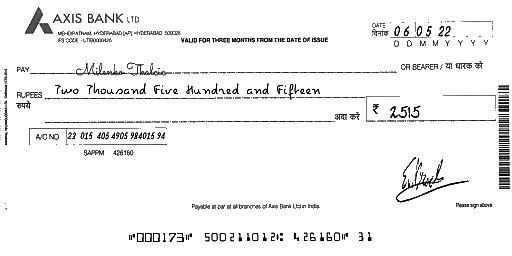 AXIS BANK LTD
MEHDIPATNAM, HYDERABAD [AP] HYDERABAD 500028
IFS CODE - UTIB0000426
VALID FOR THREE MONTHS FROM THE DATE OF ISSUE
DATE
दिनांक 06 05 22
D D M M Y Y Y Y
PAY Milenko Tkalcic OR BEARER / या धारक को
RUPEES Two Thousand Five Hundred and Fifteen
रुपये अदा करें ₹ 2515
A/C NO 23 015 405 4905 984015 94
SAPPM 426160
Payable at par at all branches of Axis Bank Ltd in India.
Please sign above
"000173" 500211012: 426160" 31